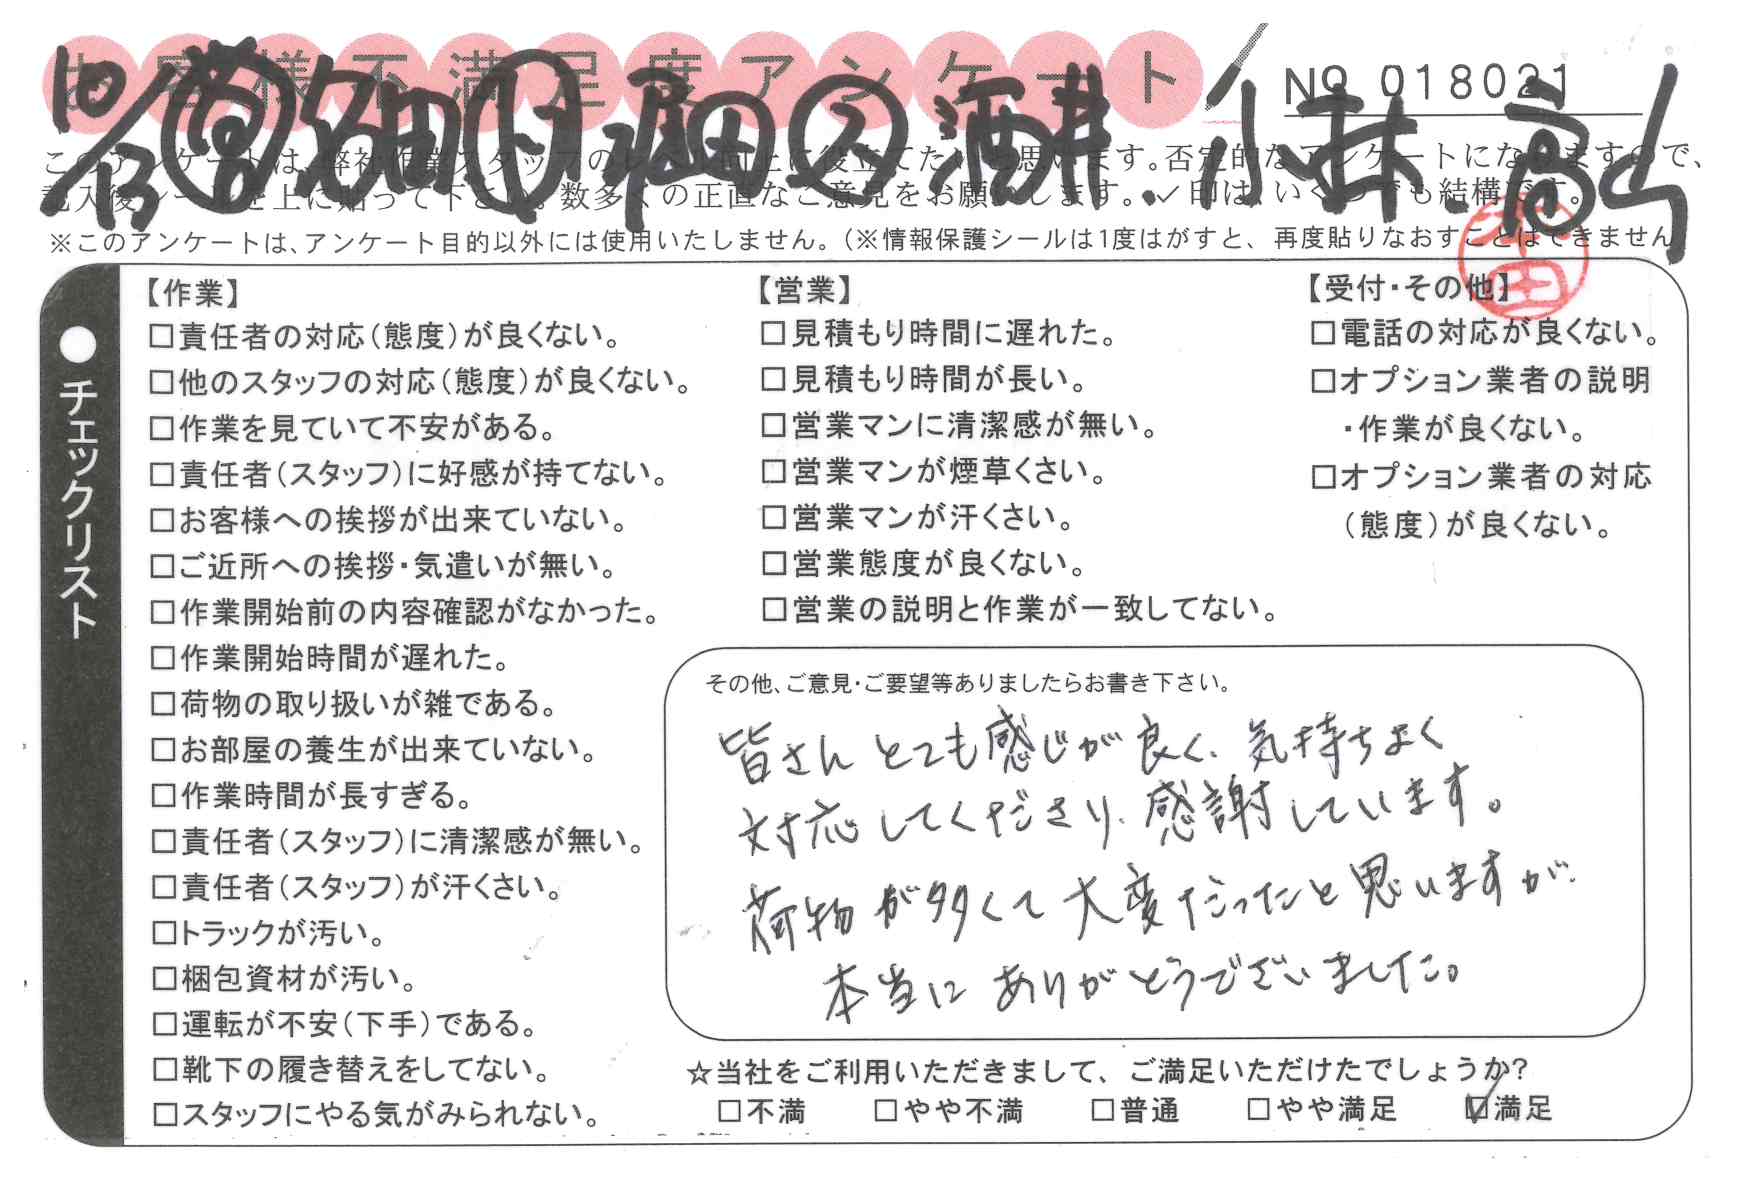 お客様不満足度アンケート
NO 018021
10/13 営 畑田 ト 堀田 ② 酒井.小林.高山
このアンケートは、弊社作業スタッフのレベル向上に役立てたいと思います。否定的なアンケートになりますので、
記入後シールを上に貼って下さい。数多くの正直なご意見をお願いします。✓印は、いくつでも結構です。
※このアンケートは、アンケート目的以外には使用いたしません。(※情報保護シールは1度はがすと、再度貼りなおすことはできません
本田
●チェックリスト
【作業】
□責任者の対応(態度)が良くない。
□他のスタッフの対応(態度)が良くない。
□作業を見ていて不安がある。
□責任者(スタッフ)に好感が持てない。
□お客様への挨拶が出来ていない。
□ご近所への挨拶・気遣いが無い。
□作業開始前の内容確認がなかった。
□作業開始時間が遅れた。
□荷物の取り扱いが雑である。
□お部屋の養生が出来ていない。
□作業時間が長すぎる。
□責任者(スタッフ)に清潔感が無い。
□責任者(スタッフ)が汗くさい。
□トラックが汚い。
□梱包資材が汚い。
□運転が不安(下手)である。
□靴下の履き替えをしてない。
□スタッフにやる気がみられない。
【営業】
□見積もり時間に遅れた。
□見積もり時間が長い。
□営業マンに清潔感が無い。
□営業マンが煙草くさい。
□営業マンが汗くさい。
□営業態度が良くない。
□営業の説明と作業が一致してない。
【受付・その他】
□電話の対応が良くない。
□オプション業者の説明
・作業が良くない。
□オプション業者の対応
(態度)が良くない。
その他、ご意見・ご要望等ありましたらお書き下さい。
皆さんとても感じが良く、気持ちよく
対応してくださり、感謝しています。
荷物が多くて大変だったと思いますが、
本当にありがとうございました。
☆当社をご利用いただきまして、ご満足いただけたでしょうか?
□不満 □やや不満 □普通 □やや満足 ☑満足